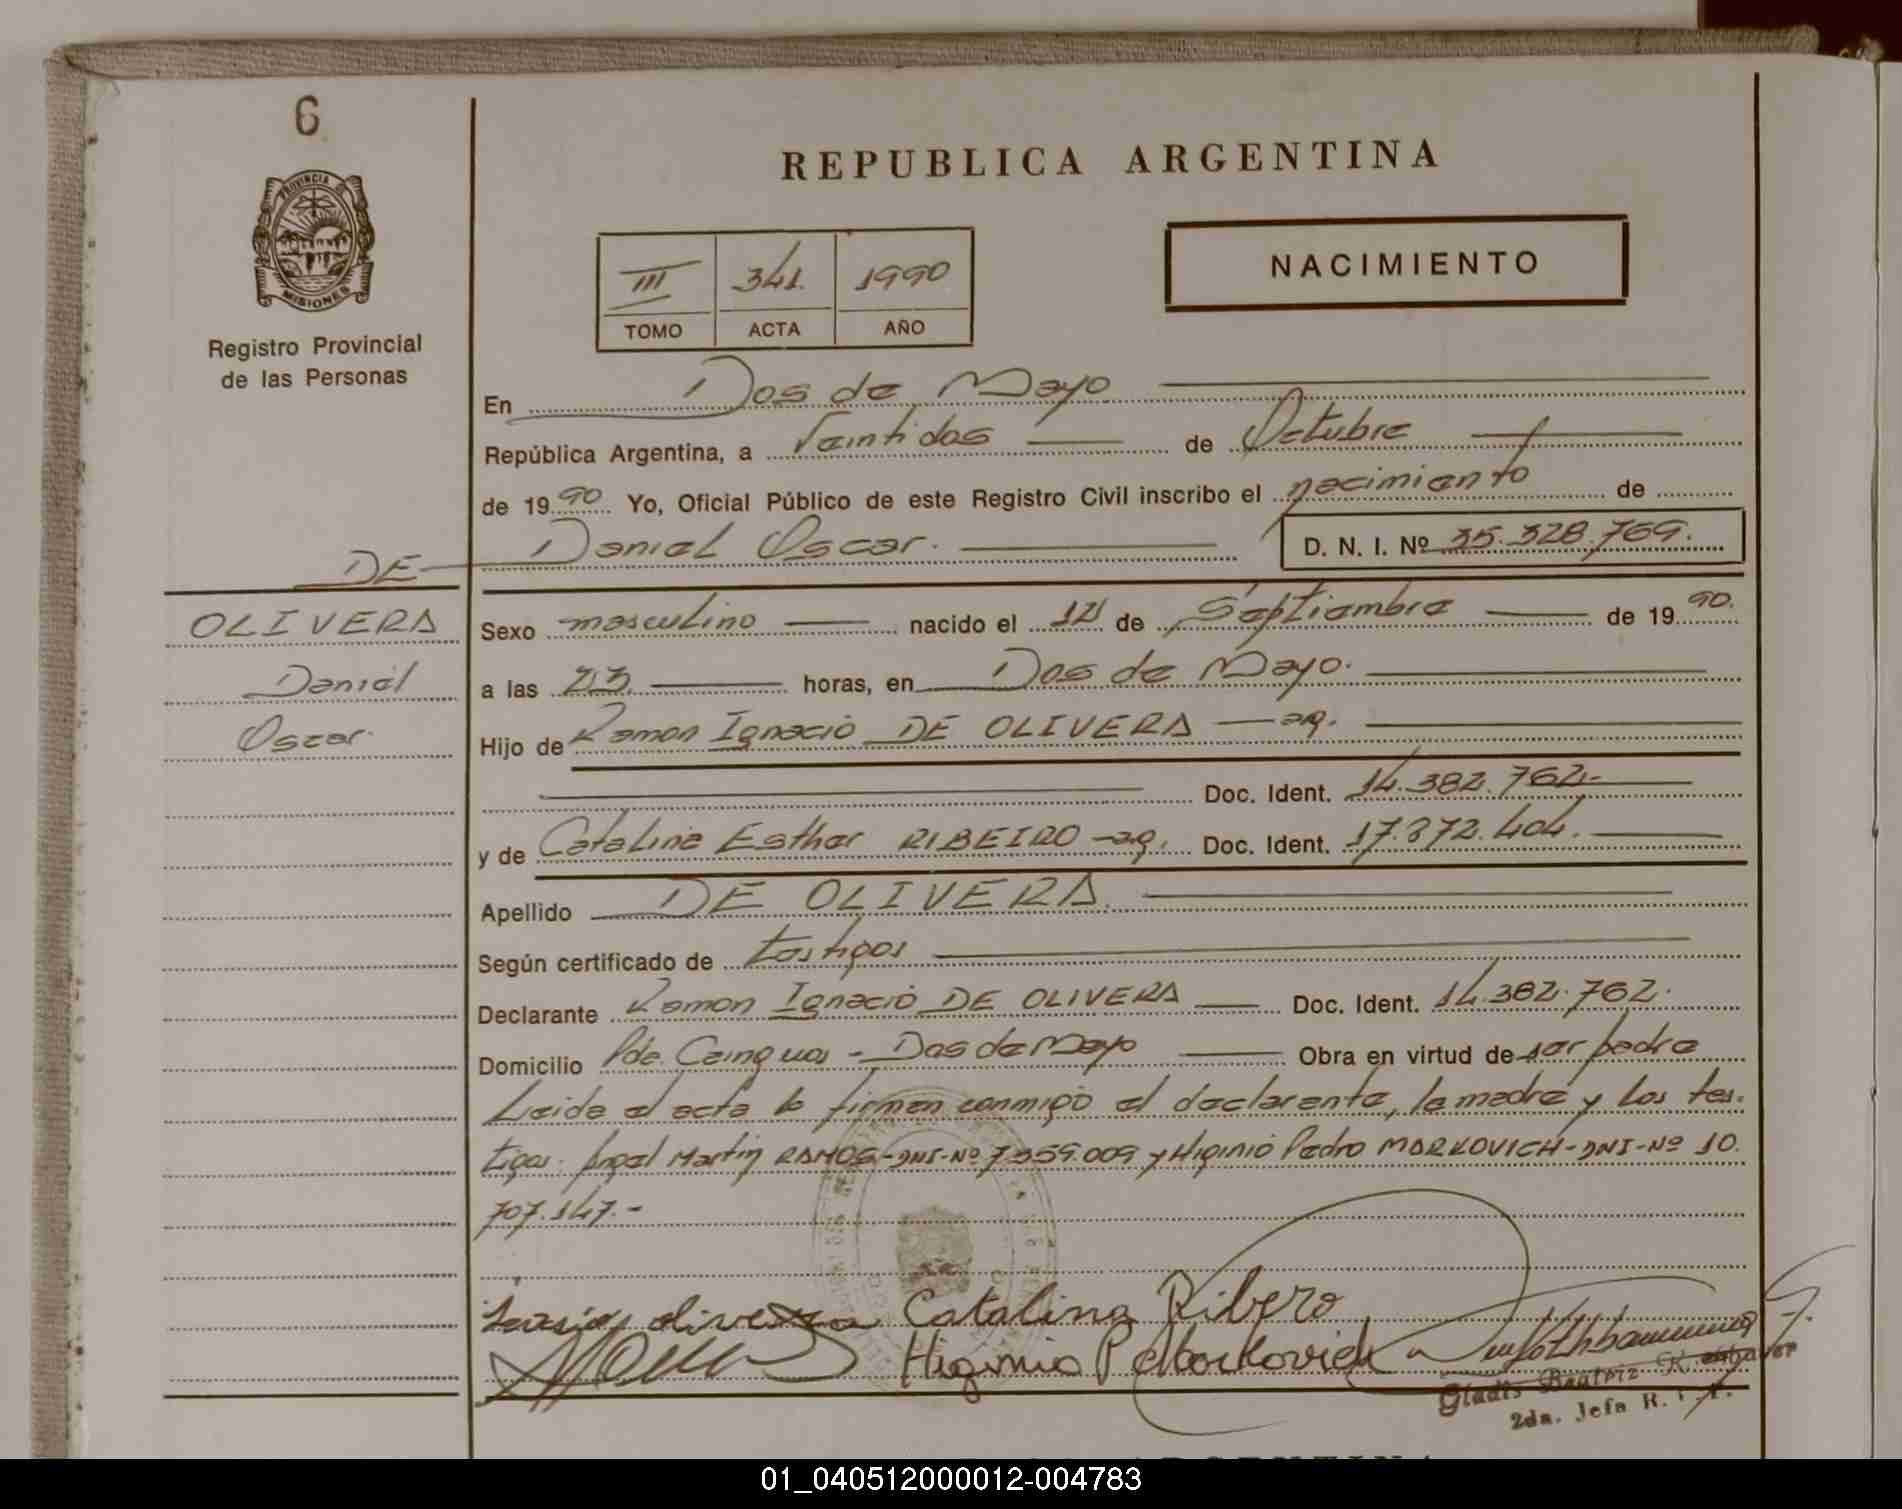 6
PROVINCIA DE
MISIONES
Registro Provincial
de las Personas
REPUBLICA ARGENTINA
NACIMIENTO
III 341. 1990
TOMO ACTA AÑO
En Dos de Mayo
República Argentina, a Veintidos de Octubre
de 1990 Yo, Oficial Público de este Registro Civil inscribo el nacimiento de
Daniel Oscar. D. N. I. Nº 35.328.769.
DE
OLIVERA
Daniel
Oscar.
Sexo masculino nacido el 12 de Septiembre de 1990.
a las 23. horas, en Dos de Mayo.
Hijo de Ramon Ignacio DE OLIVERA - ag.
Doc. Ident. 14.382.762.-
y de Catalina Esther RIBEIRO - ag. Doc. Ident. 17.872.404.
Apellido DE OLIVERA.
Según certificado de testigos
Declarante Ramon Ignacio DE OLIVERA Doc. Ident. 14.382.762.
Domicilio Pde. Cainguas - Dos de Mayo Obra en virtud de ser padre
Leida el acta la firman conmigo el declarante, la madre y los tes-
tigos: Angel Martin RAMOS-DNI-Nº 7.559.009 y Higinio Pedro MARKOVICH-DNI-Nº 10.
707.147.-
olivera Catalina Ribero
Higinio P Markovich
Gladis Beatriz
2da. Jefa R.
01_040512000012-004783